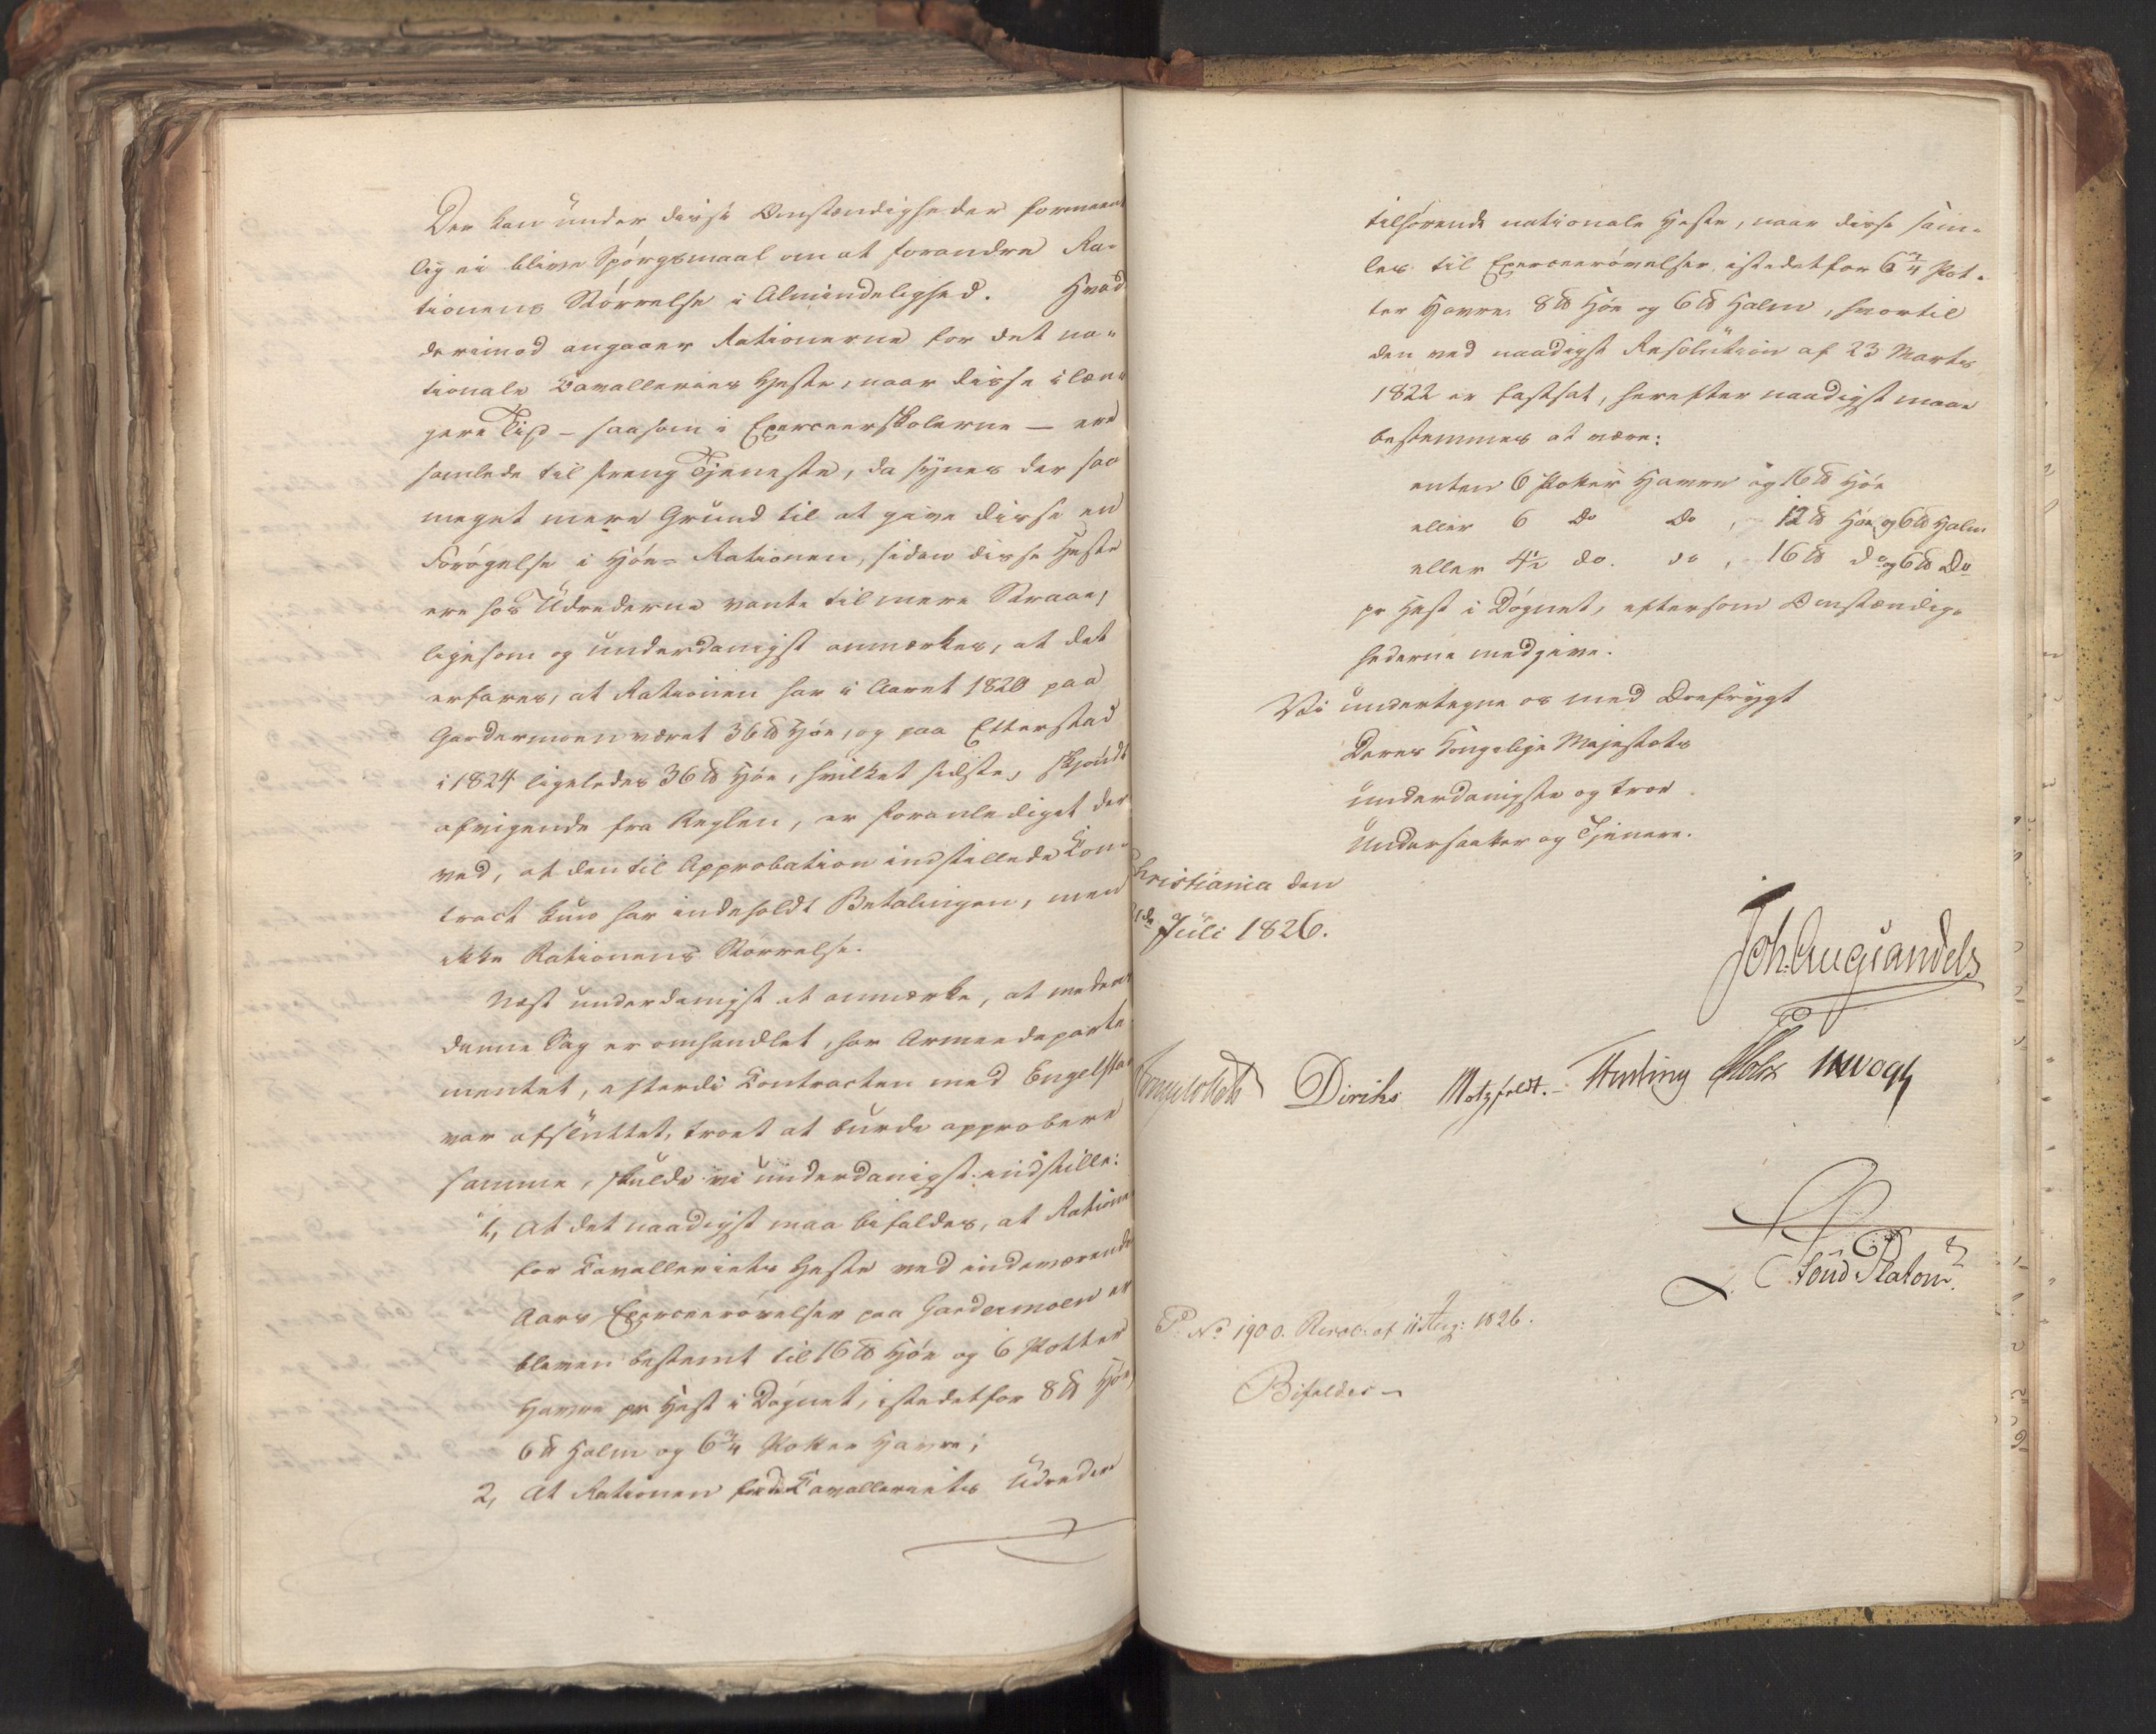 Der kan under disse Omstændigheder formeent
lig ei blive Spørgsmaal om at forandre Ra-
tionens Størrelse i Almindelighed. Hvad
derimod angaaer Rationerne for det na-
tionale Cavalleries Heste, naar disse i læn-
gere Tid - saasom i Exerceerskolerne - ere
samlede til streng Tjeneste, da synes der saa
meget mere Grund til at give disse en
Forøgelse i Høe-Rationen, siden disse Heste
ere hos Udrederne vante til mere Straae,
ligesom og underdanigst anmærkes, at det
erfares, at Rationen har i Aaret 1820 paa
Gardermoen været 36 ℔ Høe, og paa Etterstad
i 1824 ligeledes 36 ℔ Høe, hvilket sidste, skjøndt
afvigende fra Reglen, er foranlediget der
ved, at den til Approbation indstillede Con-
tract kun har indeholdt Betalingen, men
ikke Rationens Størrelse.
Næst underdanigst at anmærke, at medens
denne Sag er omhandlet, har Armeedeparte
mentet, efterdi Contracten med Engelstad
var afsluttet, troet at burde approbere
samme, skulde vi underdanigst indstille:
1, At det naadigst maa bifaldes, at Rationen
for Cavalleriets Heste ved indeværende
Aars Exerceerøvelser paa Gardermoen er
bleven bestemt til 16 ℔ Høe og 6 Potter
Havre pr Hest i Døgnet, istedetfor 8 ℔ Høe,
6 ℔ Halm og 6 3/4 Potter Havre;
2, At Rationen for de Cavalleriets Udredere
tilhørende nationale Heste, naar disse sam-
les til Exerceerøvelser, istedetfor 6 3/4 Pot-
ter Havre, 8 ℔ Høe og 6 ℔ Halm, hvortil
den ved naadigst Resolution af 23 Marts
1822 er fastsat, herefter naadigst maae
bestemmes at være:
enten 6 Potter Havre og 16 ℔ Høe
eller 6 Do Do, 12 ℔ Høe og 6 ℔ Halm
eller 4 1/2 do. do, 16 ℔ do og 6 ℔ Do
pr Hest i Døgnet, eftersom Omstændig-
hederne medgive.
Vi undertegne os med Ærefrygt
Deres Kongelige Majestæts
underdanigste og troe
Undersaatter og Tjenere.
Christiania den
Juli 1826.
Joh: Aug: Sandels
Diriks Motzfeldt. Holst Vogt
Soüs Platou
P. No 1900. Resol: af 11 Aug: 1826.
Bifaldes